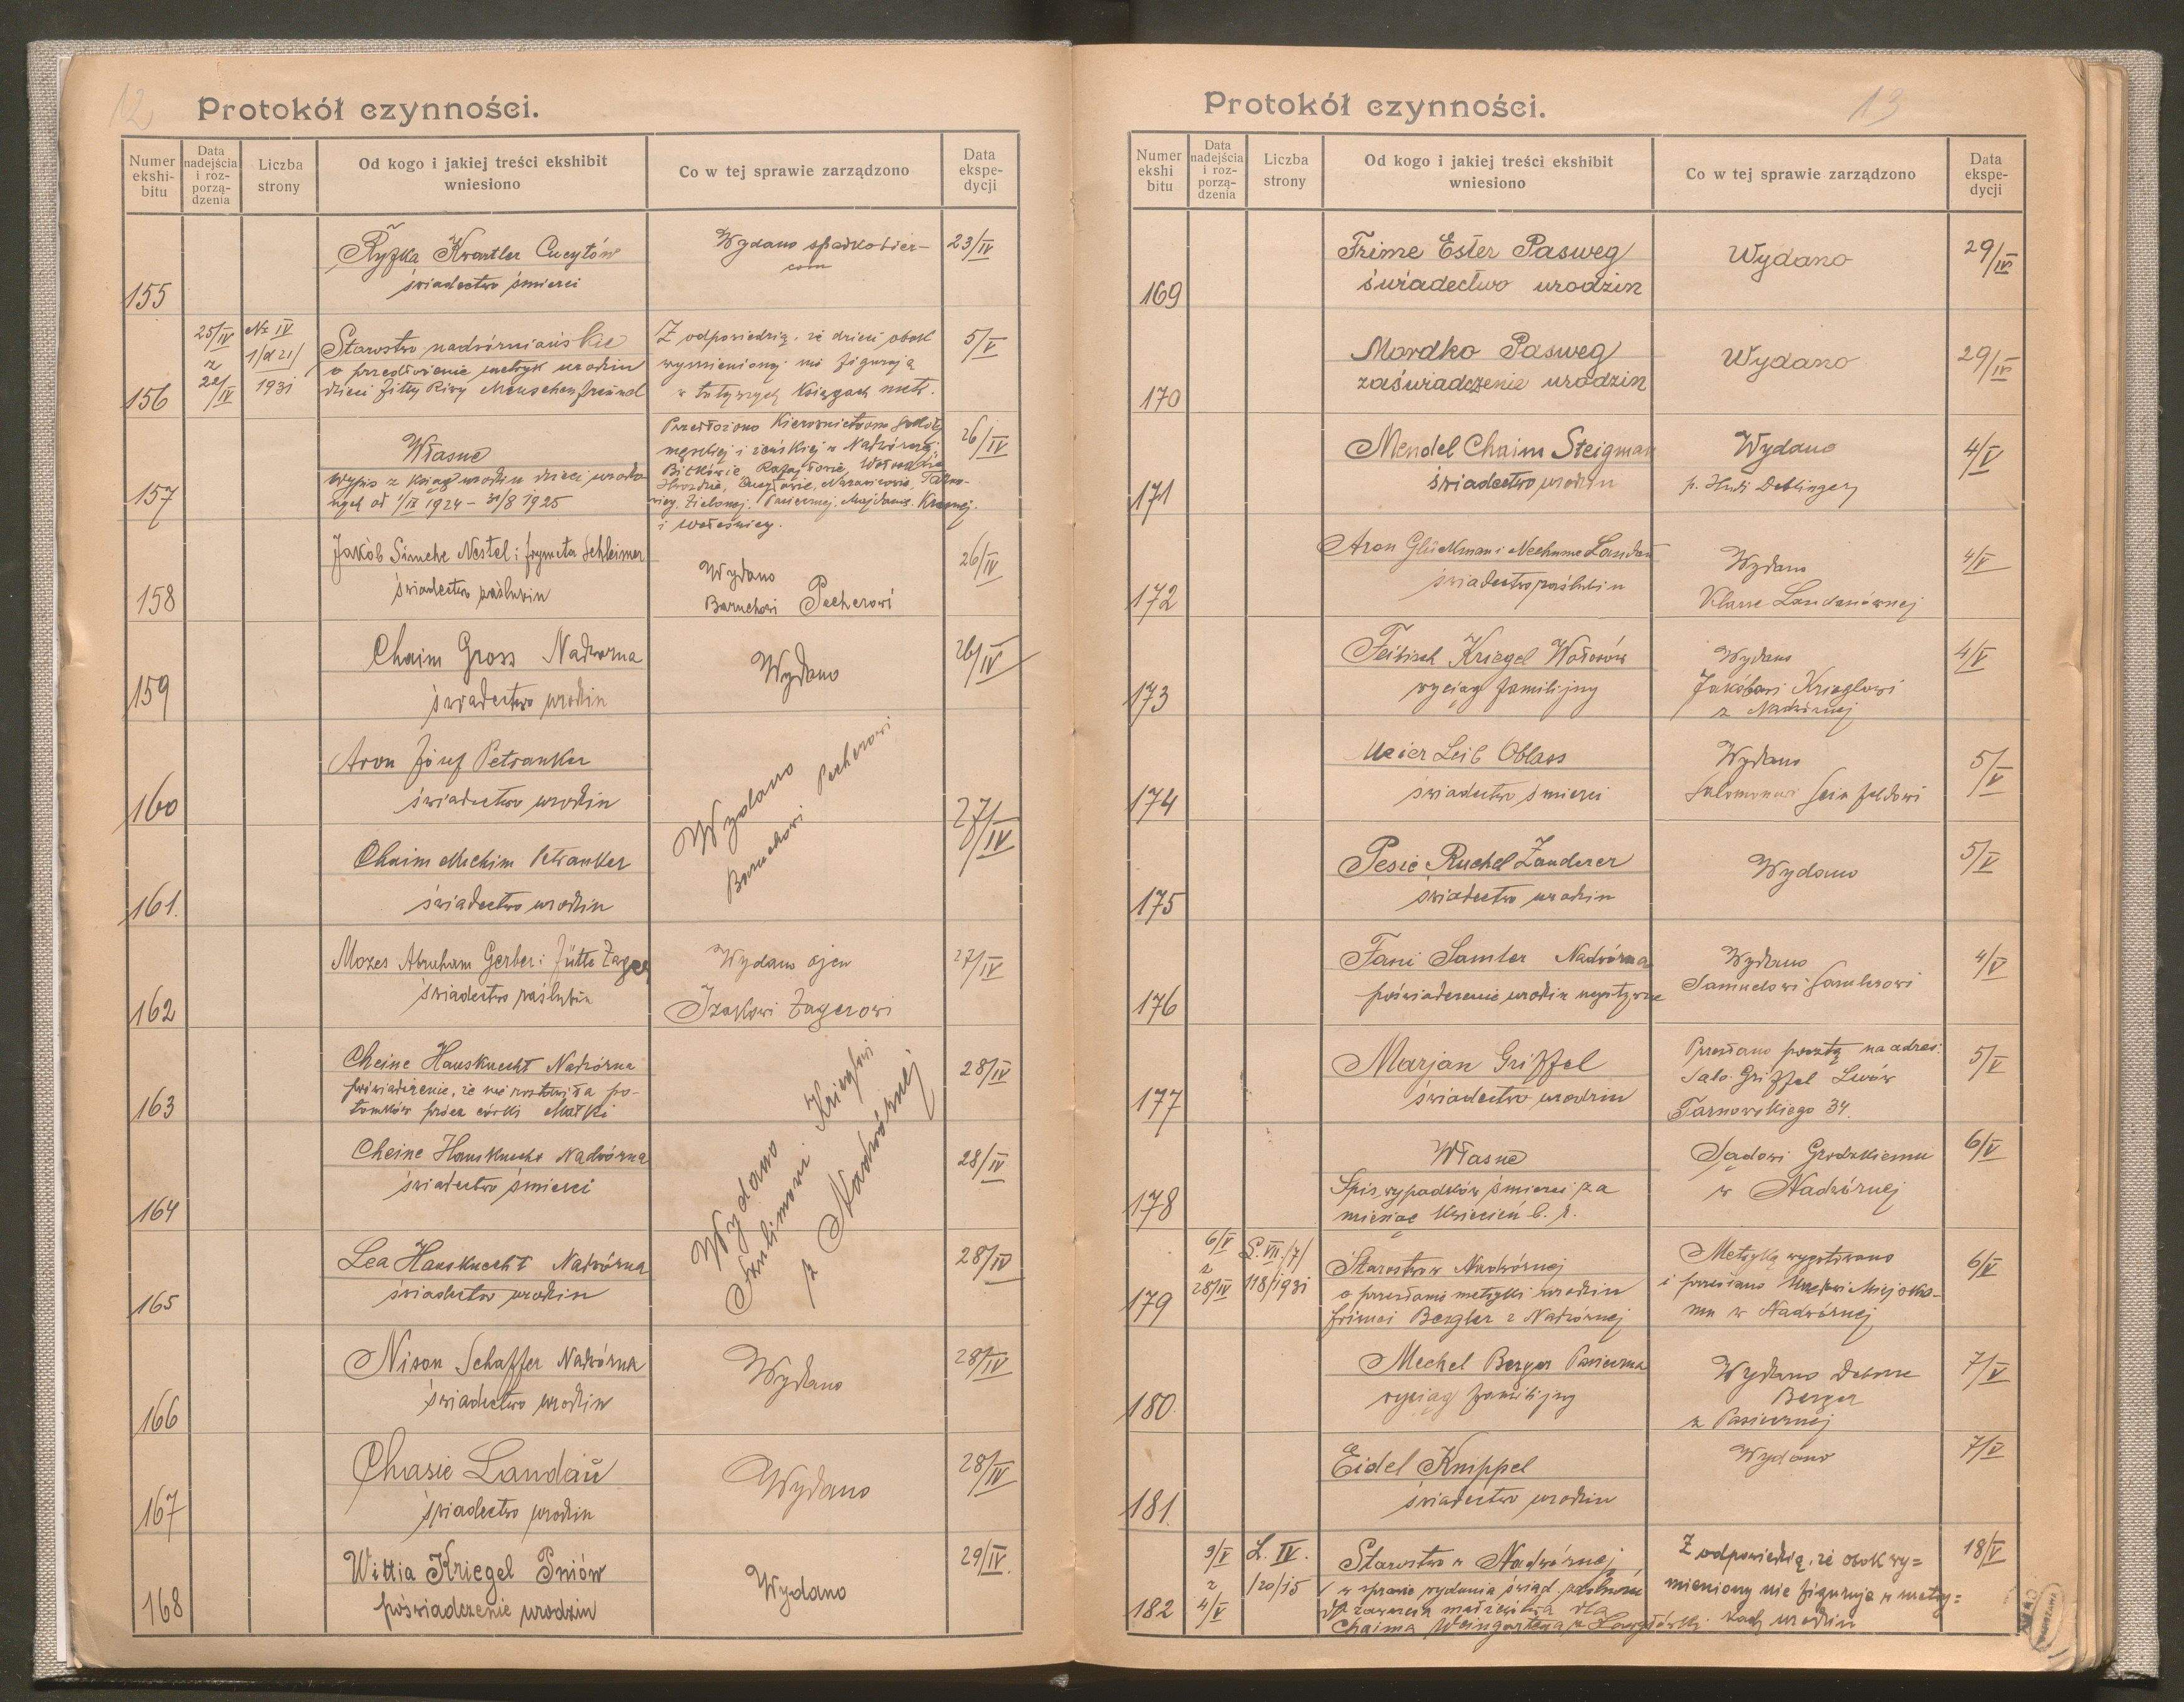 12
Protokół czynności.
Numer ekshi-bitu
Data nadejścia i roz-porzą-dzenia
Liczba strony
Od kogo i jakiej treści ekshibit wniesiono
Co w tej sprawie zarządzono
Data ekspe-dycji
155
Ryfka Kvartler Cucyłów
świadectwo śmierci
Wydano spadkobier-
com
23/IV
156
25/IV
z
22/IV
Nr IV
1/d 21/
1931
Starostwo nadwórniańskie
o przedłożenie metryk urodzin
dzieci Zitty Rivy Menschenfreund
Z odpowiedzią, że dzieci obok
wymienionej nie figurują
w tutejszych księgach metr.
5/V
157
Własne
Wypis z ksiąg urodzin dzieci urodzo
nych od 1/IX 1924 - 31/8 1925
Przedłożono Kierownictwom szkoły
męskiej i żeńskiej w Nadwórnej,
Bitkowie, Rafajłowie,
Hwozdzie, Cucyłowie, Nazawizowie, Tarno-
wicy, Zielonej, Pasiecznej, Majdanie, Krasnej
i Wołośniey.
26/IV
158
Jakób Simche Nestel i Frymeta Schleimer
świadectwo zaślubin
Wydano
Baruchowi Pecherowi
26/IV
159
Chaim Gross Nadwórna
świadectwo urodzin
Wydano
26/IV
160
Aron Józef Petranker
świadectwo urodzin
Wydano
Baruchowi Pecherowi
27/IV
161.
Chaim Mechim Petranker
świadectwo urodzin
162
Mozes Abraham Gerber i Jütte Zager
świadectwo zaślubin
Wydano ojcu
Izakowi Zagerowi
27/IV
163
Cheine Hausknecht Nadwórna
poświadczenie, że nie zostawiła po-
tomków prócz córki Małki
28/IV
164
Cheine Hausknecht Nadwórna
świadectwo śmierci
Wydano
Szulimowi Krieglowi
z Nadwórnej
28/IV
165
Lea Hausknecht Nadwórna
świadectwo urodzin
28/IV
166
Nison Schaffer Nadwórna
świadectwo urodzin
Wydano
28/IV
167
Chasie Landau
świadectwo urodzin
Wydano
28/IV
168
Wittia Kriegel Pniów
poświadczenie urodzin
Wydano
29/IV.
13
Protokół czynności.
Numer ekshi bitu
Data nadejścia i roz-porzą-dzenia
Liczba strony
Od kogo i jakiej treści ekshibit wniesiono
Co w tej sprawie zarządzono
Data ekspe-dycji
169
Frime Ester Pasweg
świadectwo urodzin
Wydano
29/IV
170
Mordko Pasweg
zaświadczenie urodzin
Wydano
29/IV
171
Mendel Chaim Steigman
świadectwo urodzin
Wydano
p. Hudi Deblinger
4/V
172
Aron Glückman i Nechume Landau
świadectwo zaślubin
Wydano
Klarze Landauównej
4/V
173
Feibisch Kriegel Wołosów
wyciąg familijny
Wydano
Jakóbowi Krieglowi
z Nadwórnej
4/V
174
Meier Leib Oblass
świadectwo śmierci
Wydano
Salomonowi Seinfeldowi
5/V
175
Pesie Ruchel Zanderer
świadectwo urodzin
Wydano
5/V
176
Fani Samler Nadwórna
poświadczenie urodzin negatywne
Wydano
Samuelowi Samlerowi
4/V
177
Marjan Griffel
świadectwo urodzin
Przesłano pocztą na adres:
Salo Griffel Lwów
Tarnowskiego 34.
5/V
178
Własne
Spis wypadków śmierci za
miesiąc Kwiecień b. r.
Sądowi Grodzkiemu
w Nadwórnej
6/V
179
6/V
z
28/IV
L. VII./7/
118/1931
Starostwo w Nadwórnej
o przesłanie metryki urodzin
Frimci Bergler z Nadwórnej
Metrykę wygotowano
i przesłano
mu w Nadwórnej
6/V
180
Mechel Berger Pasieczna
wyciąg familijny
Wydano Deborze
Berger
z Pasiecznej
7/V
181.
Eidel Knippel
świadectwo urodzin
Wydano
7/V
182
9/V
z
4/V
L. IV.
120/15
Starostwo w Nadwórnej
w sprawie wydania świad. zdolności
do zawarcia małżeństwa dla
Chaima Weingartena z
Z odpowiedzią, że obok wy=
mieniony nie figuruje w metry=
kach urodzin
18/V